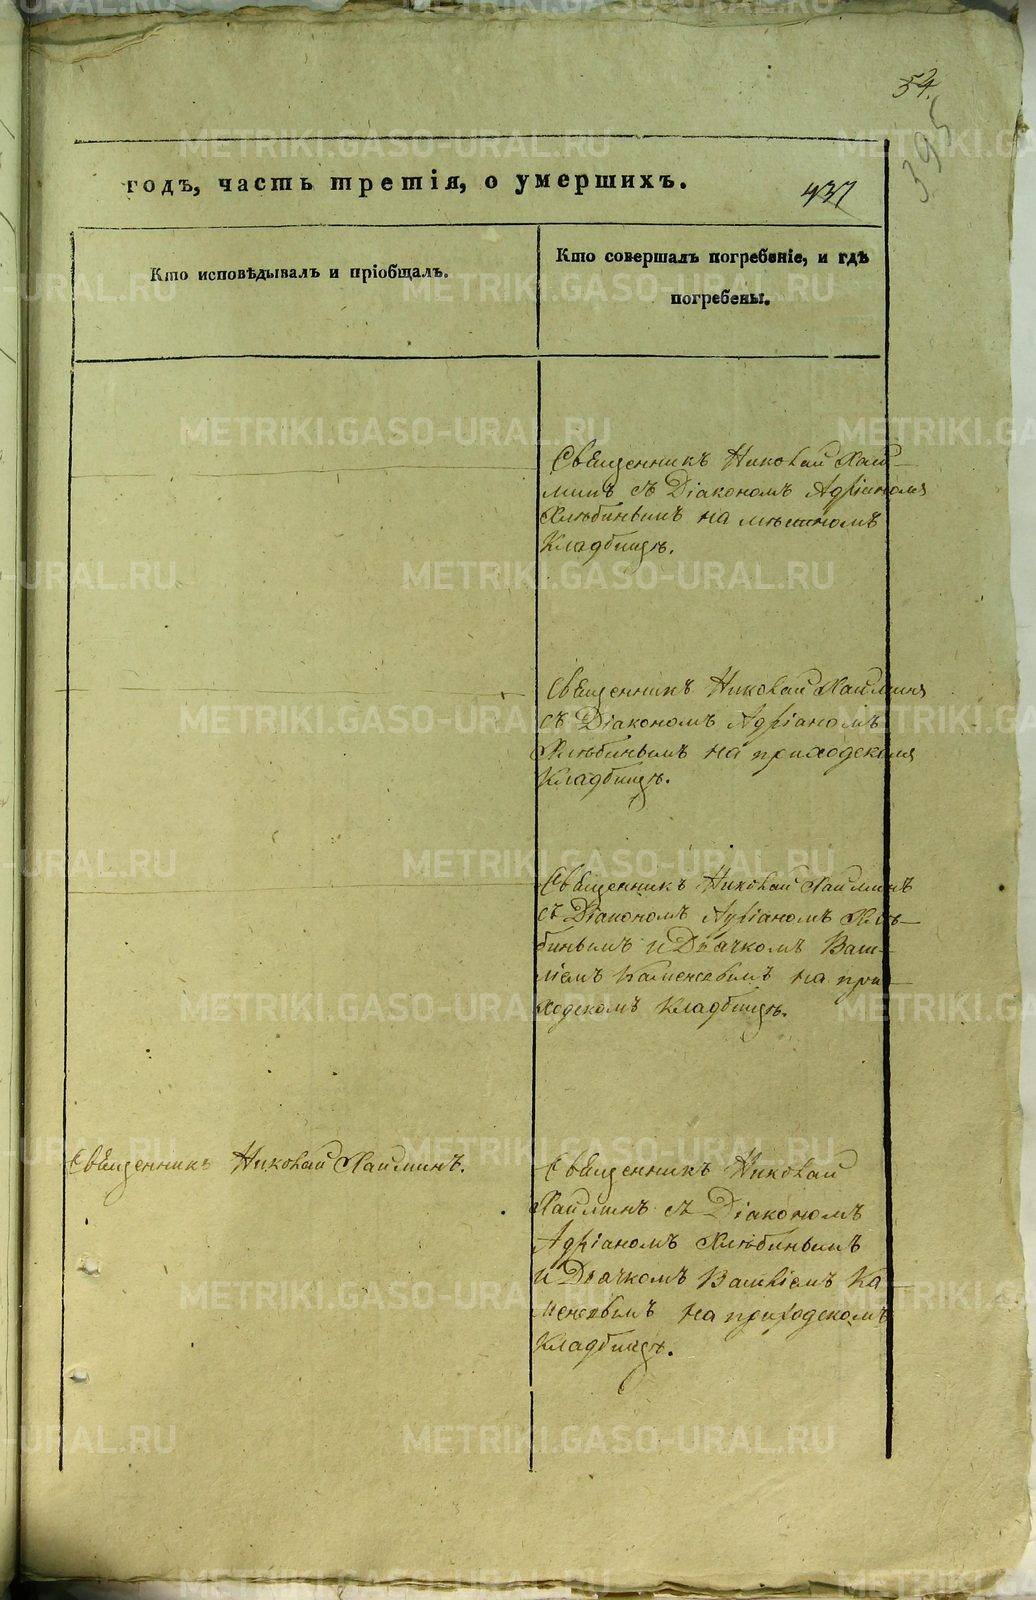 54.
395
годъ, часть третія, о умершихъ.
437
Кто исповѣдывалъ и пріобщалъ.
Кто совершалъ погребеніе, и гдѣ
погребены.
Священникъ Николай Хай-
минъ съ Діакономъ Адріаномъ
Хлѣбинымъ на мѣстномъ
Кладбищѣ.
Священникъ Николай Хайминъ
съ Діакономъ Адріаномъ
Хлѣбинымъ на приходскомъ
Кладбищѣ.
Священникъ Николай Хайминъ
съ Діакономъ Адріаномъ Хлѣ-
бинымъ и Дьячкомъ Васи-
ліемъ Каменевымъ на при-
ходскомъ Кладбищѣ.
Священникъ Николай Хайминъ.
Священникъ Николай
Хайминъ съ Діакономъ
Адріаномъ Хлѣбинымъ
и Дьячкомъ Василіемъ Ка-
меневымъ на приходскомъ
Кладбищѣ.
METRIKI.GASO-URAL.RU